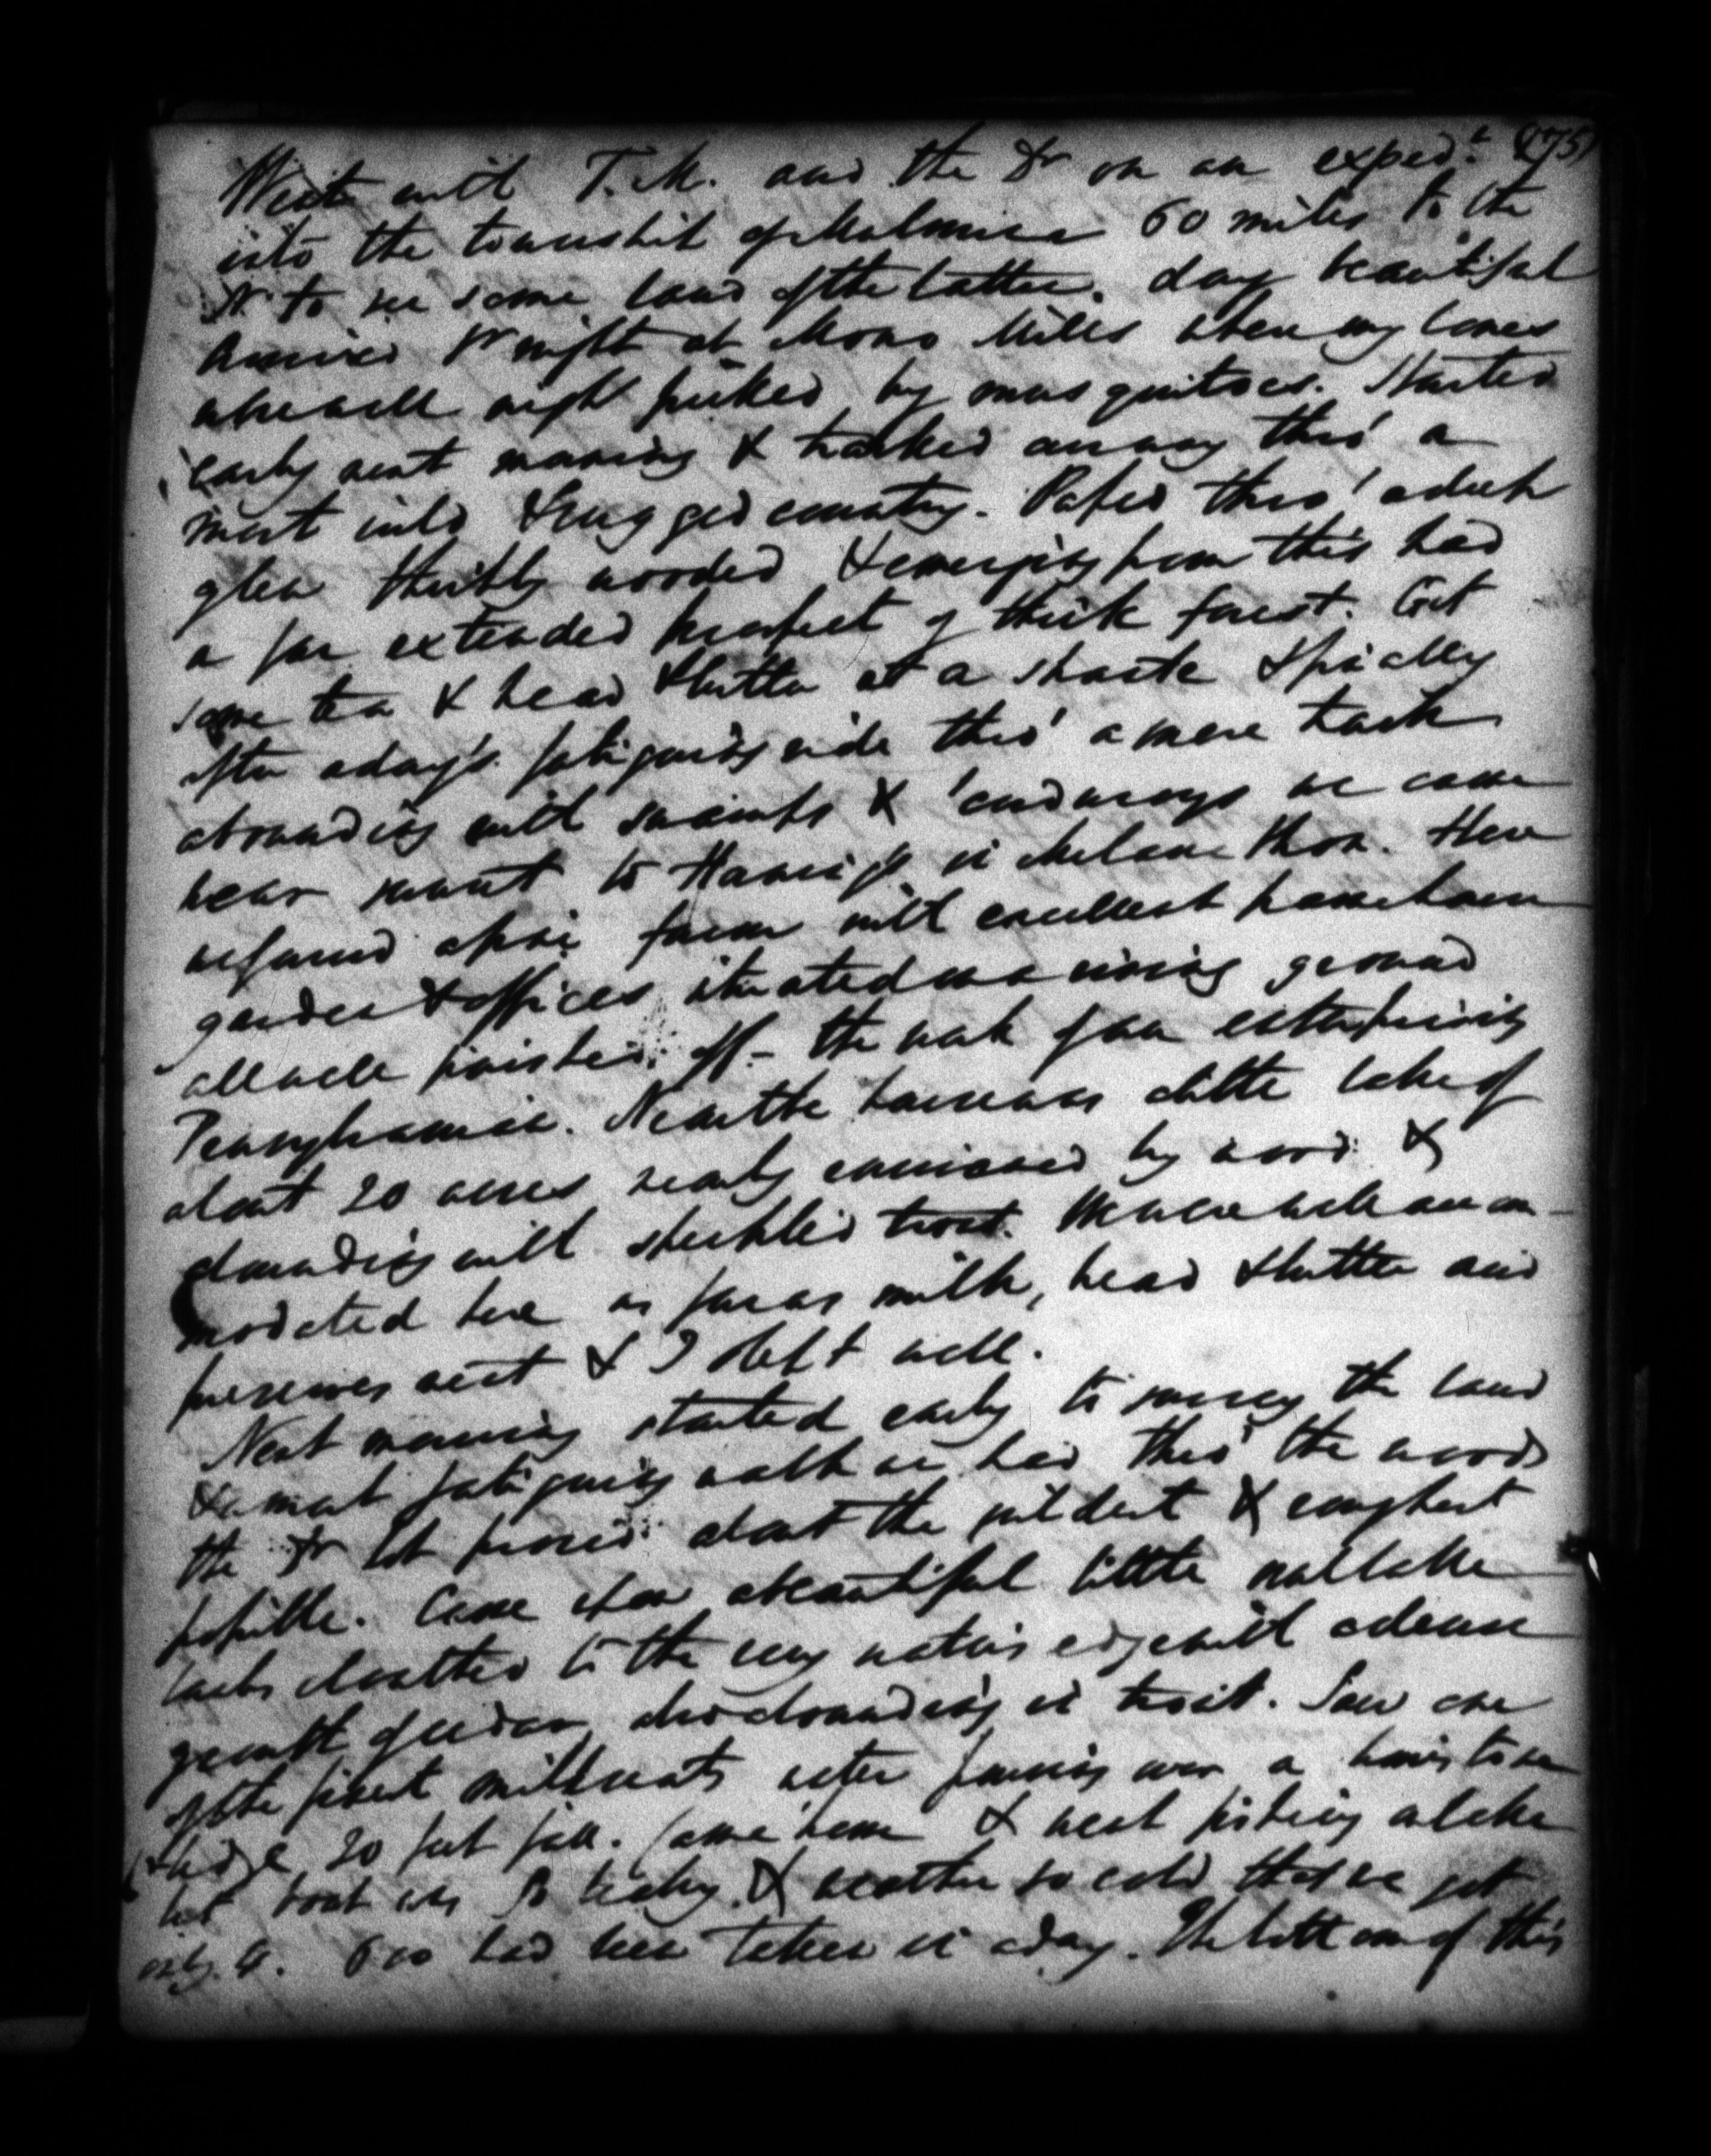 Went with T. M. and the Dr on an exped.n (175)
into the township of Mulmur 60 miles to the
N. to see some land of the latter. day beautiful
Arrived 1st night at Mono Mills where my bones
were well nigh picked by musquitoes. Started
early next morning & trotted away thro' a
most wild & rugged country. Passed thro' a deep
glen thickly wooded & emerging from this had
a far extended prospect of thick forest. Got
some tea & bread & butter at a shanty & finally
after a day's fatiguing ride thro' a mere track
abounding with swamps & corduroys we came
near sunset to in Melancthon. Here
we found a fine farm with excellent frame house
garden & offices situated on a rising ground
all well finished off - the work of an enterprising
Pennsylvanian. Near the house was a little lake of
about 20 acres nearly environed by wood &
abounding with speckled trout. We were well accom-
modated here as far as milk, bread & butter and
preserves went & I slept well.
Next morning started early to survey the land
& a most fatiguing walk we had thro' the woods
the Dr lot proved about the wildest & roughest
possible. Came upon a beautiful little small lake
banks cloathed to the very water's edge with a dense
growth of cedar, also abounding in trout. Saw one
of the finest mill seats water running over a limestone
ledge 20 feet fall. Came home & went fishing on lake
but boat was so leaky & weather so cold that we got
only 4. 600 had been taken in a day. The bottom of this